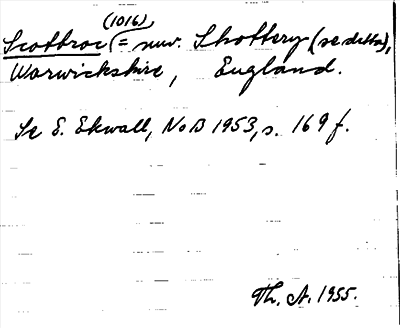 (1016)
Scotbroc (= nuv. Shottery (se detta),
Warwickshire, England.
Se E. Ekwall, NoB 1953, s. 169 f.
Th. A. 1955.